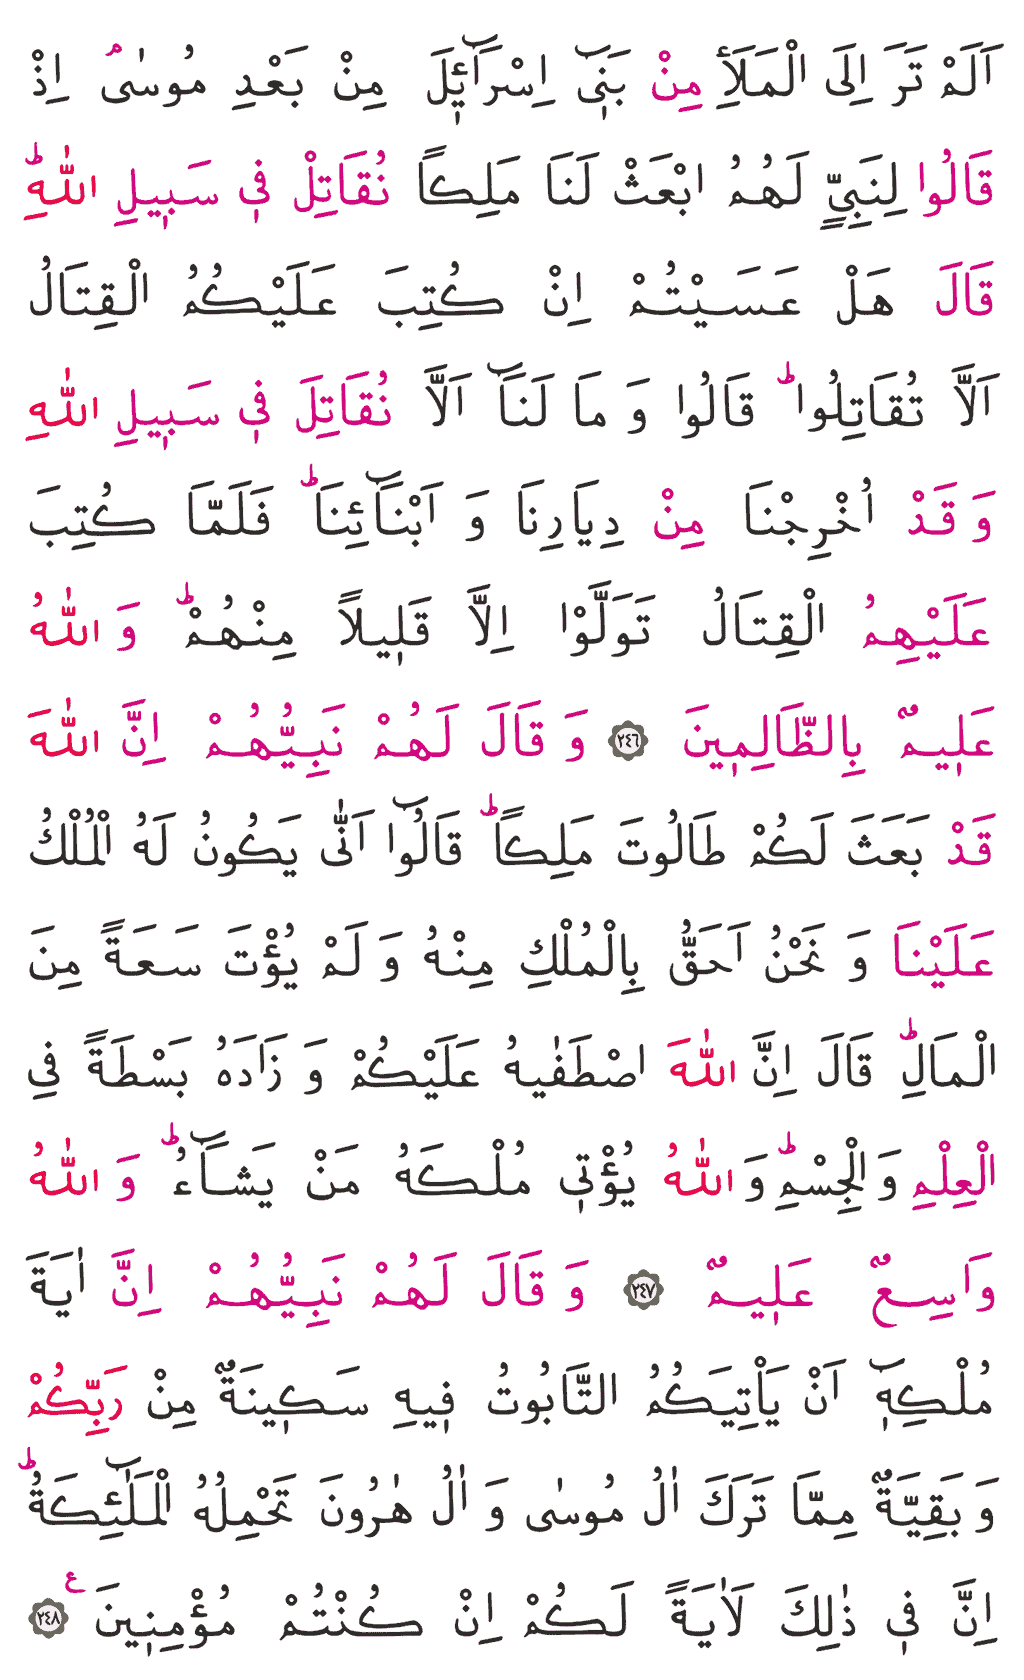 اَلَمْ تَرَ اِلَى الْمَلَاِ مِنْ بَنِیْۤ اِسْرَآءِیْلَ مِنْ بَعْدِ مُوْسٰیۘ اِذْ
قَالُوا لِنَبِیٍّ لَهُمُ ابْعَثْ لَنَا مَلِكًا نُقَاتِلْ فِیْ سَبِیلِ اللّٰهِؕ
قَالَ هَلْ عَسَیْتُمْ اِنْ كُتِبَ عَلَیْكُمُ الْقِتَالُ
اَلَّا تُقَاتِلُواؕ قَالُوا وَ مَا لَنَاۤ اَلَّا نُقَاتِلَ فِیْ سَبِیلِ اللّٰهِ
وَ قَدْ اُخْرِجْنَا مِنْ دِیَارِنَا وَ اَبْنَآئِنَاؕ فَلَمَّا كُتِبَ
عَلَیْهِمُ الْقِتَالُ تَوَلَّوْا اِلَّا قَلِیلًا مِنْهُمْؕ وَ اللّٰهُ
عَلِیمٌ بِالظَّالِمِینَ ﴿٢٤٦﴾ وَ قَالَ لَهُمْ نَبِیُّهُمْ اِنَّ اللّٰهَ
قَدْ بَعَثَ لَكُمْ طَالُوتَ مَلِكًاؕ قَالُوۤا اَنّٰی یَكُونُ لَهُ الْمُلْكُ
عَلَیْنَا وَ نَحْنُ اَحَقُّ بِالْمُلْكِ مِنْهُ وَ لَمْ یُؤْتَ سَعَةً مِنَ
الْمَالِؕ قَالَ اِنَّ اللّٰهَ اصْطَفٰیهُ عَلَیْكُمْ وَ زَادَهُ بَسْطَةً فِی
الْعِلْمِ وَ الْجِسْمِؕ وَ اللّٰهُ یُؤْتِی مُلْكَهُ مَنْ یَشَآءُؕ وَ اللّٰهُ
وَاسِعٌ عَلِیمٌ ﴿٢٤٧﴾ وَ قَالَ لَهُمْ نَبِیُّهُمْ اِنَّ اٰیَةَ
مُلْكِهٖۤ اَنْ یَاْتِیَكُمُ التَّابُوتُ فِیهِ سَكِینَةٌ مِنْ رَبِّكُمْ
وَ بَقِیَّةٌ مِمَّا تَرَكَ اٰلُ مُوسٰی وَ اٰلُ هٰرُونَ تَحْمِلُهُ الْمَلٰٓئِكَةُؕ
اِنَّ فِی ذٰلِكَ لَاٰیَةً لَكُمْ اِنْ كُنْتُمْ مُؤْمِنِینَ ﴿٢٤٨﴾ ع